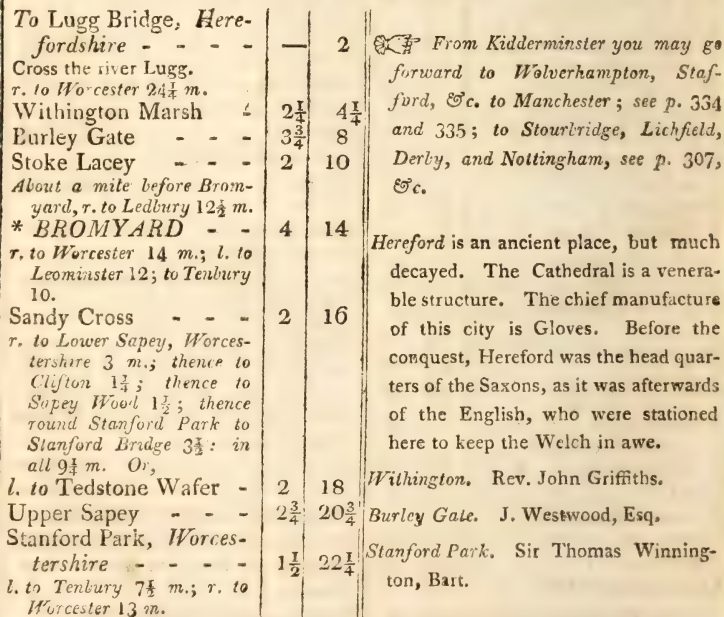 To Lugg Bridge, Here-
fordshire - - - - — 2
Cross the river Lugg.
r. to Worcester 24¼ m.
Withington Marsh - 2¼ 4¼
Burley Gate - - - 3¾ 8
Stoke Lacey - - - 2 10
About a mile before Brom-
yard, r. to Ledbury 12½ m.
* BROMYARD - - 4 14
r. to Worcester 14 m.; l. to
Leominster 12; to Tenbury
10.
Sandy Cross - - - 2 16
r. to Lower Sapey, Worces-
tershire 3 m.; thence to
Clifton 1¾; thence to
Sapey Wood 1½; thence
round Stanford Park to
Stanford Bridge 3½: in
all 9¾ m. Or,
l. to Tedstone Wafer - 2 18
Upper Sapey - - - 2¾ 20¾
Stanford Park, Worces-
tershire - - - - 1½ 22¼
l. to Tenbury 7½ m.; r. to
Worcester 13 m.
☞ From Kidderminster you may go
forward to Wolverhampton, Staf-
ford, &c. to Manchester; see p. 334
and 335; to Stourbridge, Lichfield,
Derby, and Nottingham, see p. 307,
&c.
Hereford is an ancient place, but much
decayed. The Cathedral is a venera-
ble structure. The chief manufacture
of this city is Gloves. Before the
conquest, Hereford was the head quar-
ters of the Saxons, as it was afterwards
of the English, who were stationed
here to keep the Welch in awe.
Withington. Rev. John Griffiths.
Burley Gate. J. Westwood, Esq.
Stanford Park. Sir Thomas Winning-
ton, Bart.